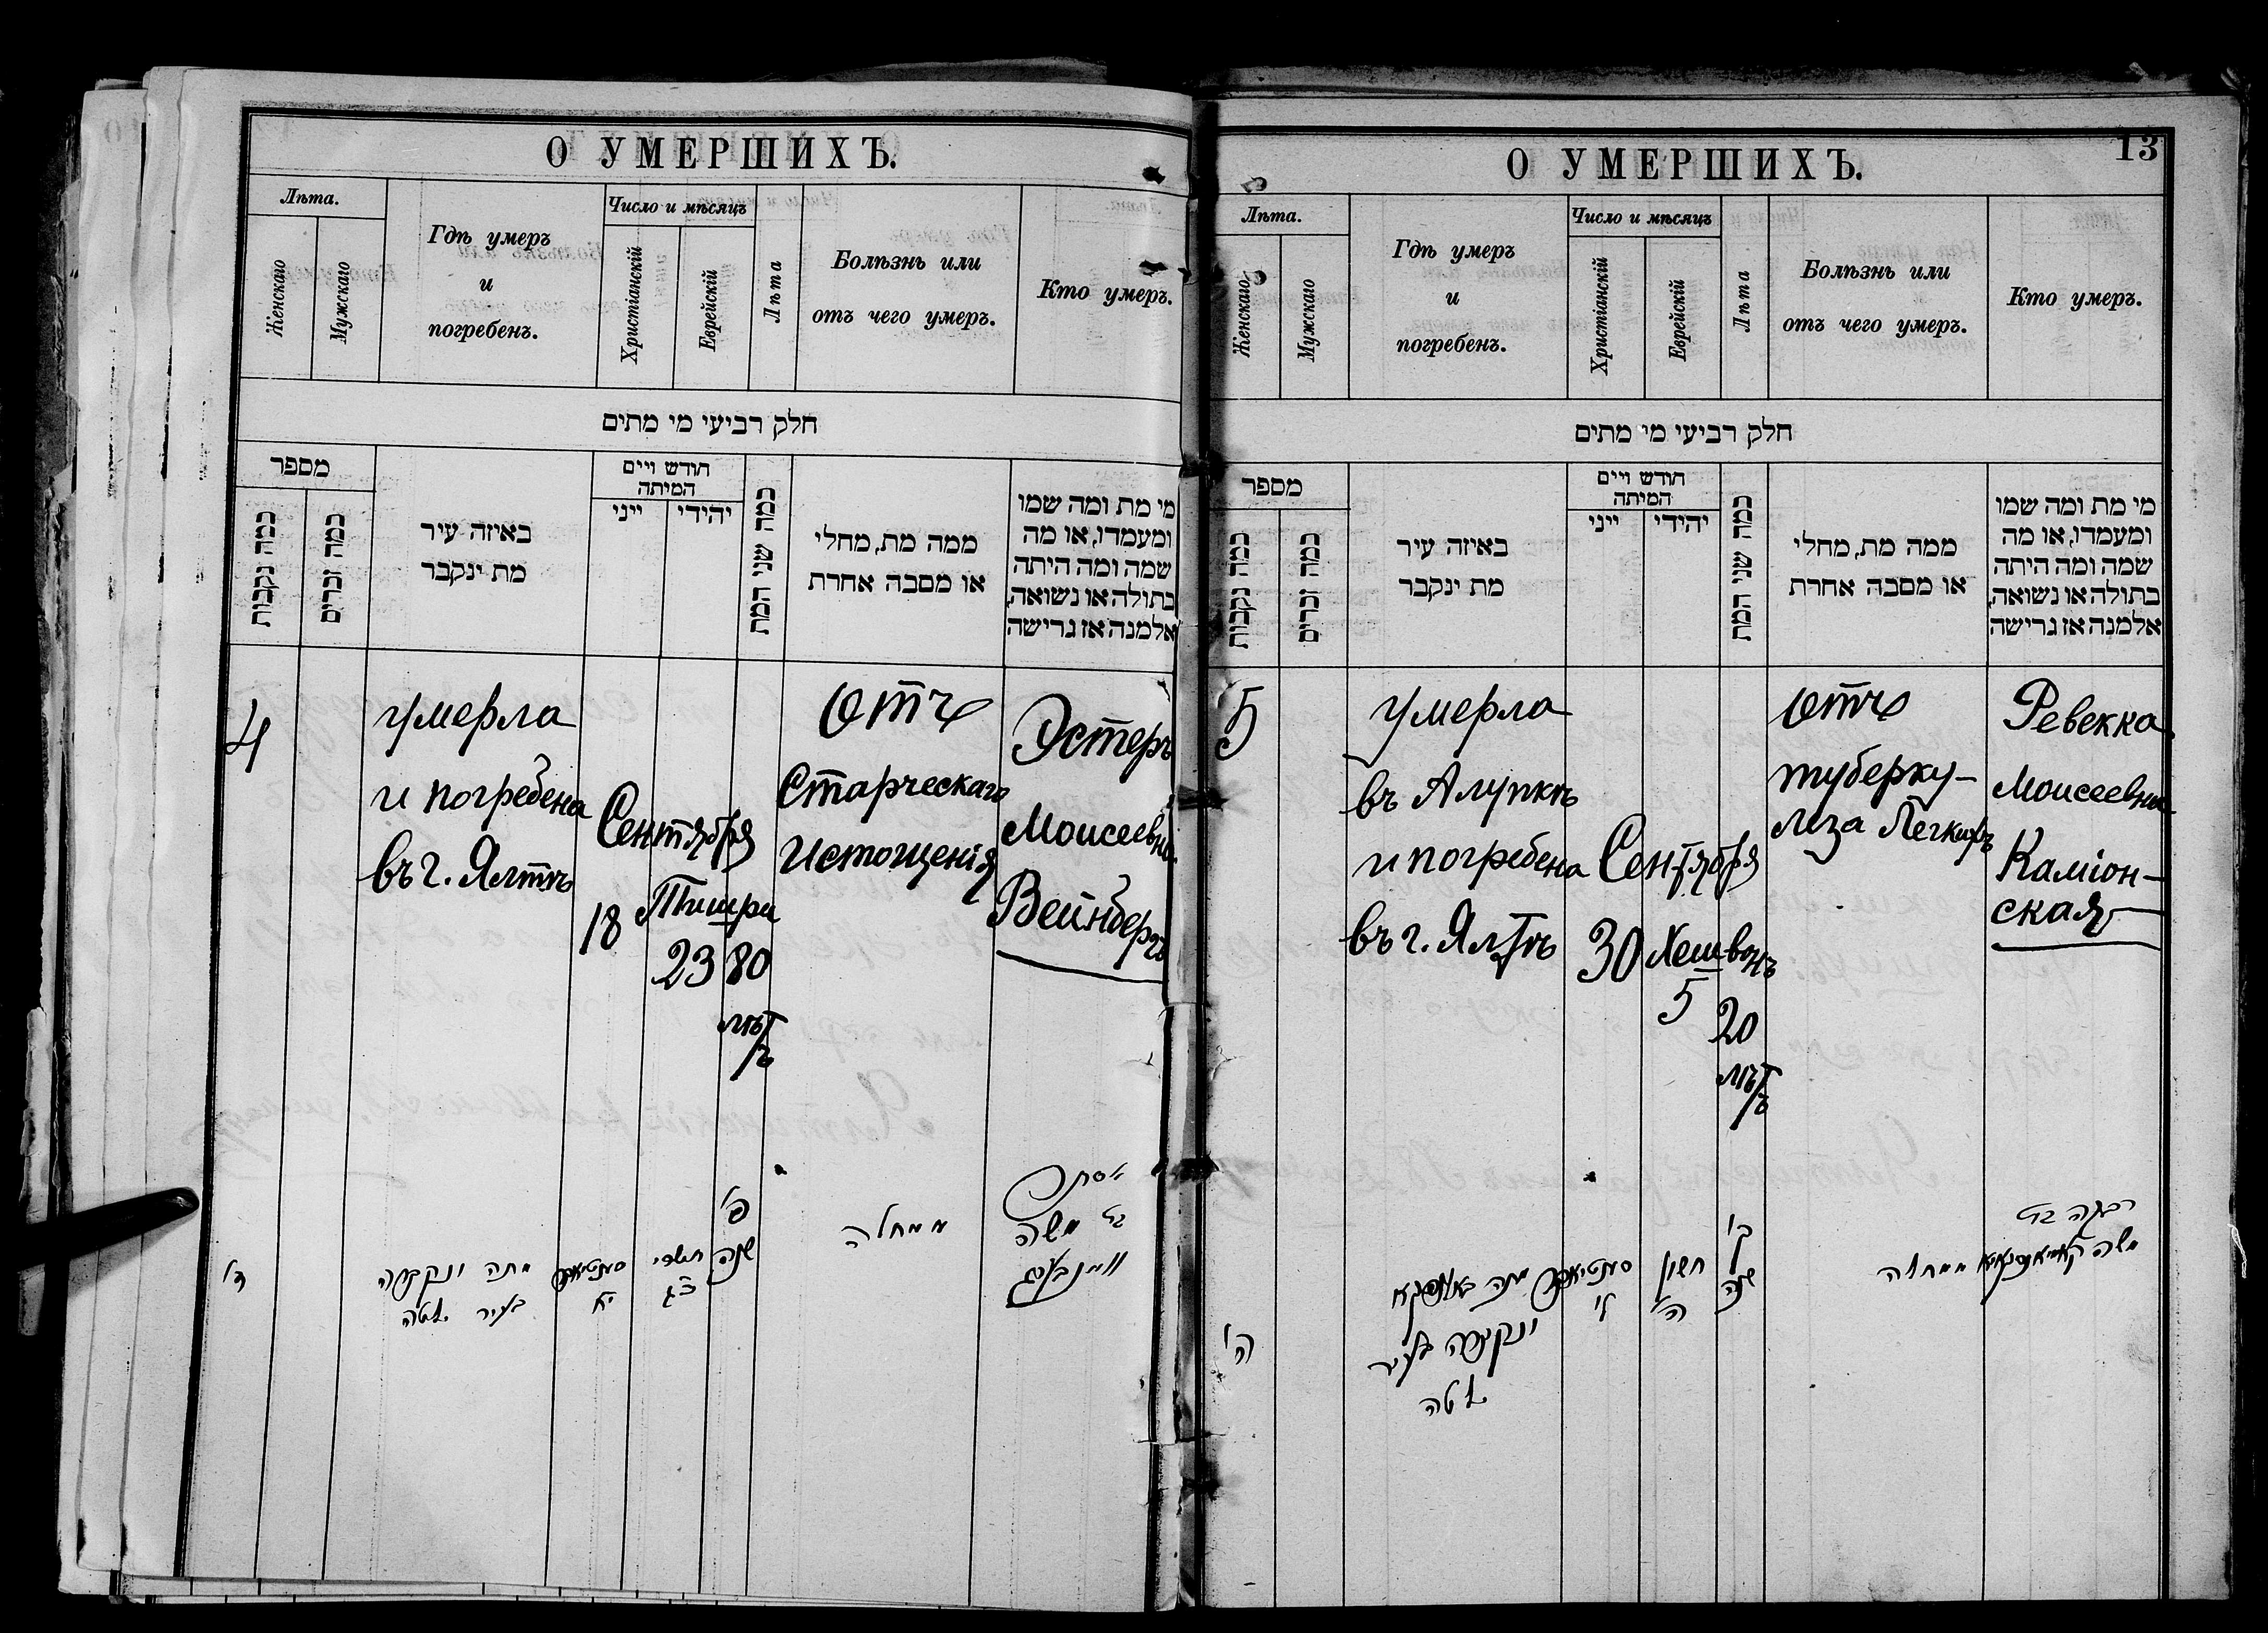 О УМЕРШИХЪ.
Лѣта.
Женскаго
Мужскаго
Гдѣ умеръ
и
погребенъ.
Число и мѣсяцъ
Христіанскій
Еврейскій
Лѣта
Болѣзнь или
отъ чего умеръ.
Кто умеръ.
חלק רביעי מי מתים
מספר
כמה נקבות
כמה זכרים
באיזה עיר
מת ינקבר
חודש ויים
המיתה
ייני
יהידי
כמה שני המת
ממה מת, מחלי
או מסבה אחרת
מי מת ומה שמו
ומעמדו, או מה
שמה ומה היתה
בתולה או נשואה,
אלמנה אז גרישה
4
умерла
и погребена
въ г. Ялтѣ
Сентября
18
Тишри
23
80
лѣтъ
отъ
Старческаго
Истощенія
Эстеръ
Моисеевна
Вейнбергъ
ד'
מתה ונקברה
בעיר
תשרי
כ"ג
פ'
שנה
ממחלה
אסתר
בת משה
וויינבערג
13
О УМЕРШИХЪ.
Лѣта.
Женскаго
Мужскаго
Гдѣ умеръ
и
погребенъ.
Число и мѣсяцъ
Христіанскій
Еврейскій
Лѣта
Болѣзнь или
отъ чего умеръ.
Кто умеръ.
חלק רביעי מי מתים
מספר
כמה נקבות
כמה זכרים
באיזה עיר
מת ינקבר
חודש ויים
המיתה
ייני
יהידי
כמה שני המת
ממה מת, מחלי
או מסבה אחרת
מי מת ומה שמו
ומעמדו, או מה
שמה ומה היתה
בתולה או נשואה,
אלמנה אז גרישה
5
умерла
въ Алупкѣ
и погребена
въ г. Ялтѣ
Сентября
30
Хешвонъ
5
20
лѣтъ
отъ
туберку-
леза Легкихъ
Ревекка
Моисеевна
Каміон-
ская
ה'
מתה
ונקברה בעיר
ל'
חשון
ה'
כ'
שנה
ממחלה
רבקה בת
משה